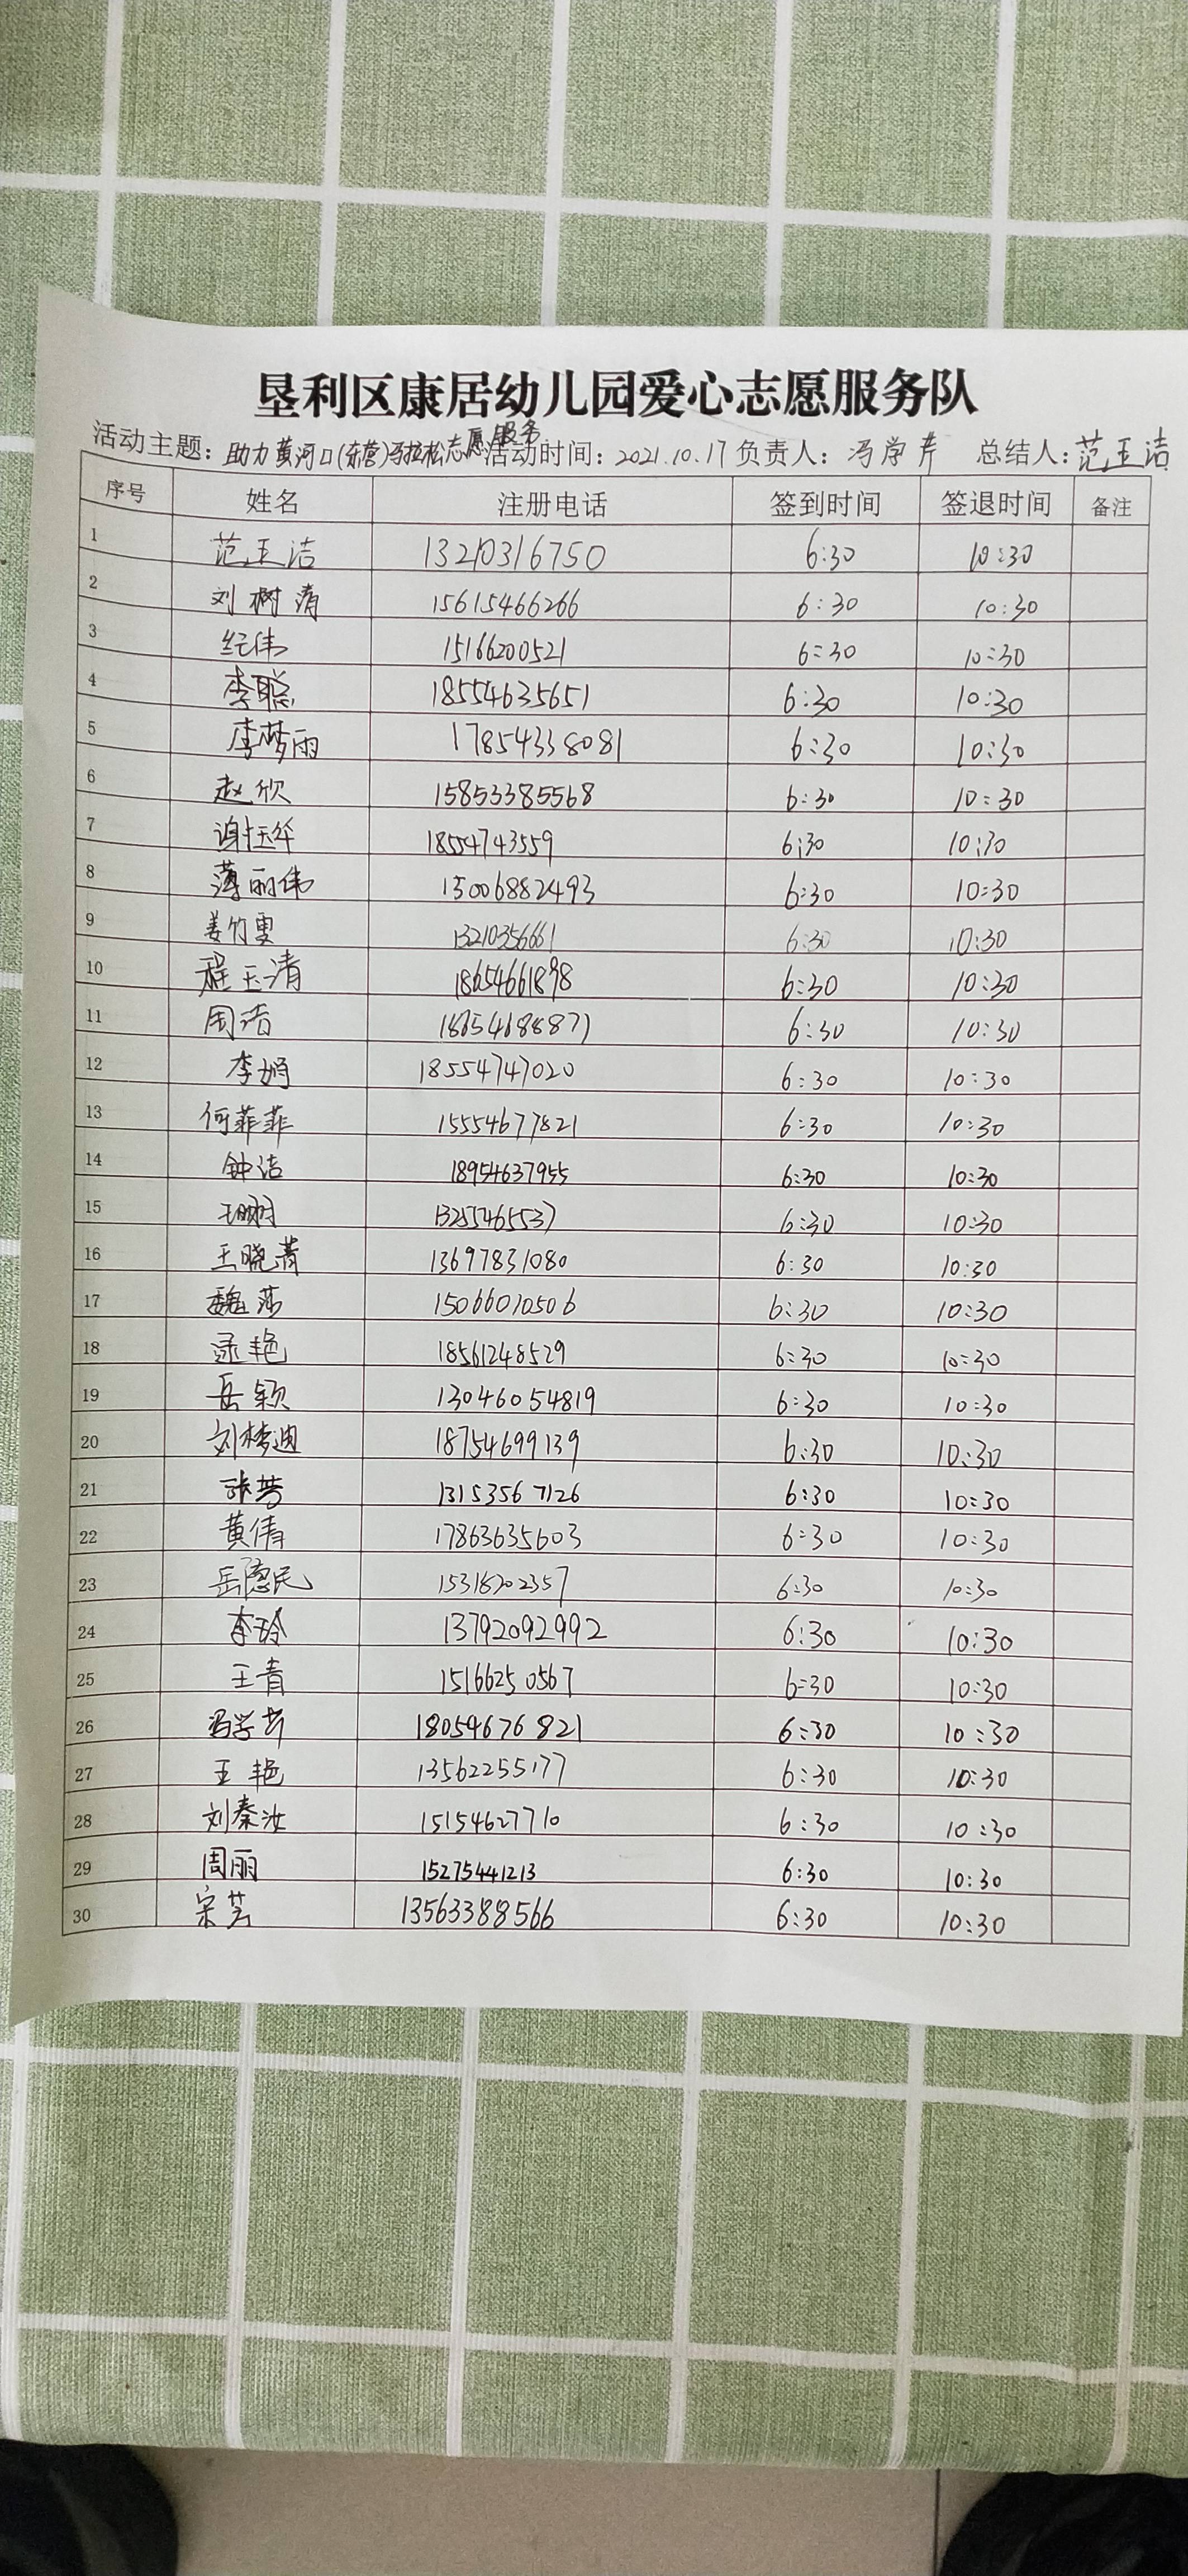 垦利区康居幼儿园爱心志愿服务队
活动主题：助力黄河口(东营)马拉松志愿服务 活动时间：2021.10.17 负责人：冯学芹 总结人：范玉洁
序号 姓名 注册电话 签到时间 签退时间 备注
1 范玉洁 13210316750 6:30 10:30
2 刘树清 15615466266 6:30 10:30
3 纪伟 15166200521 6:30 10:30
4 李聪 18554635651 6:30 10:30
5 李梦雨 17854338081 6:30 10:30
6 赵欣 15853385568 6:30 10:30
7 谢钰华 18554743559 6:30 10:30
8 薄丽伟 15006882493 6:30 10:30
9 姜竹雯 13210356661 6:30 10:30
10 程玉清 18654661898 6:30 10:30
11 周洁 18654688871 6:30 10:30
12 李娟 18554747020 6:30 10:30
13 何菲菲 15554677821 6:30 10:30
14 钟洁 18954637955 6:30 10:30
15 13255465537 6:30 10:30
16 王晓菁 13697831080 6:30 10:30
17 魏莎 15066010506 6:30 10:30
18 逯艳 18561248529 6:30 10:30
19 岳颖 13046054819 6:30 10:30
20 刘梦迪 18754699139 6:30 10:30
21 张芳 13153567126 6:30 10:30
22 黄倩 17863635603 6:30 10:30
23 岳德民 15318202357 6:30 10:30
24 李玲 13792092992 6:30 10:30
25 王青 15166250567 6:30 10:30
26 冯学芹 18054676821 6:30 10:30
27 王艳 13562255177 6:30 10:30
28 刘秦汝 15154627710 6:30 10:30
29 周丽 15275441213 6:30 10:30
30 宋芸 13563388566 6:30 10:30